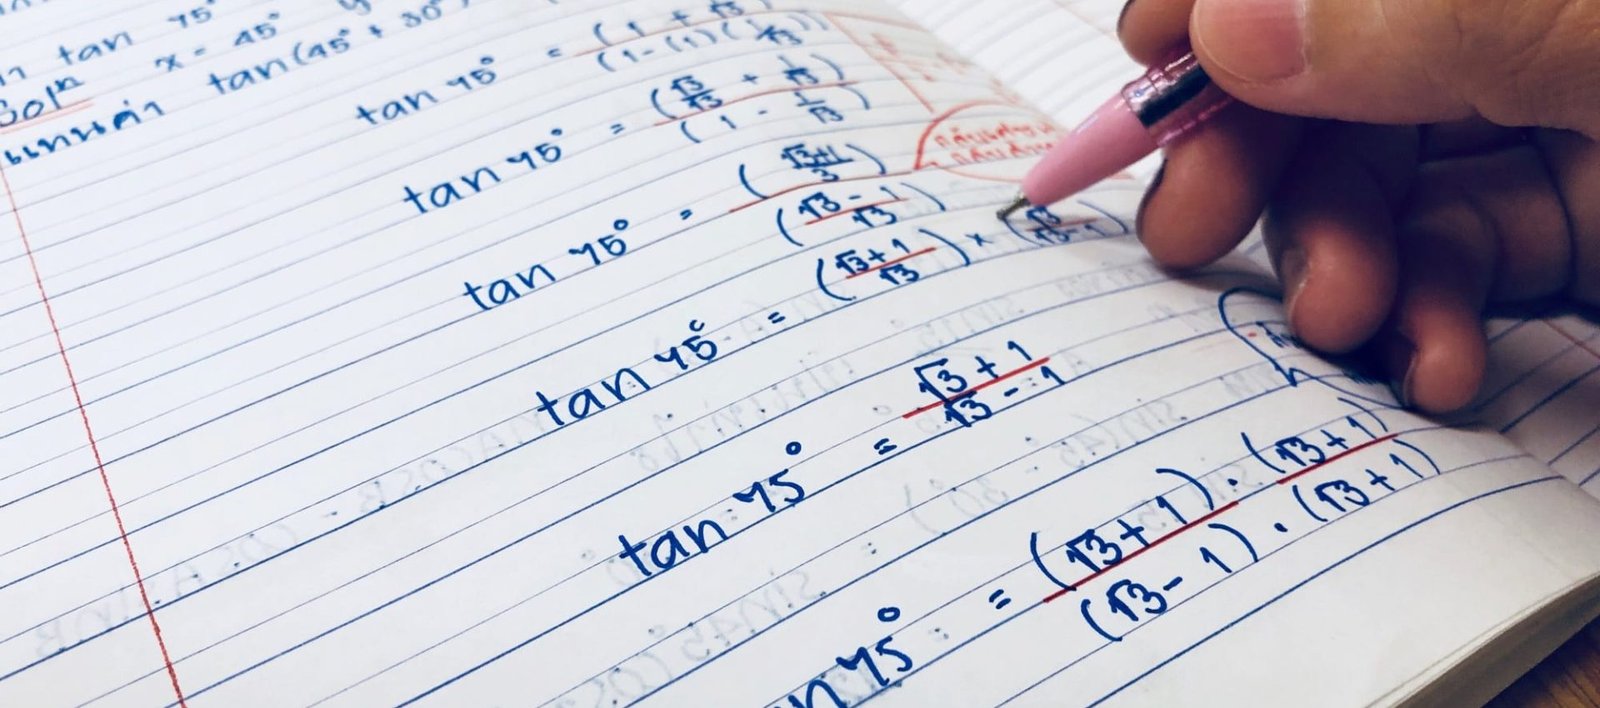 tan 75°
Solⁿ x = 45° y
แทนค่า tan(45° + 30°)
tan 75° = (1 + 1/√3) / (1-(1)(1/√3))
tan 75° = (√3/√3 + 1/√3) / (1 - 1/√3)
tan 75° = ((√3+1)/√3) / ((√3 - 1)/√3)
tan 75° = ((√3+1)/√3) × (√3/(√3-1))
tan 75° = (√3 + 1)/(√3 - 1)
an 75° = (√3+1)·(√3+1) / (√3-1)·(√3+1)